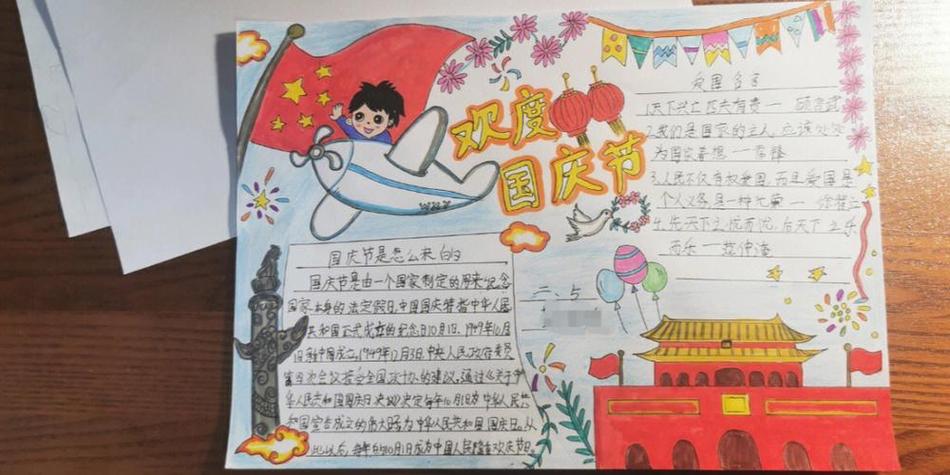 欢度
国庆节
爱国名言
1.天下兴亡匹夫有责一 顾炎武
2.我们是国家的主人,应该处处
为国家着想 一雷锋
3.人民不仅有权爱国,而且爱国是
个人义务,是一种光荣 一 徐特立
4.先天下之忧而忧,后天下之乐
而乐 一范仲淹
国庆节是怎么来的
国庆节是由一个国家制定的用来纪念
国家本身的法定假日,中国国庆特指中华人民
共和国正式成立的纪念日10月1日.1949年10月
1日新中国成立,1949年12月3日,中央人民政府委员
第四次会议接受全国政协的建议,通过《关于中
华人民共和国国庆日决议》决定每年10月1日为中华人民共
和国宣告成立的伟大日子,为中华人民共和国国庆日。从
此以后,每年的10月1日成为中国人民
欢庆节日
二、5